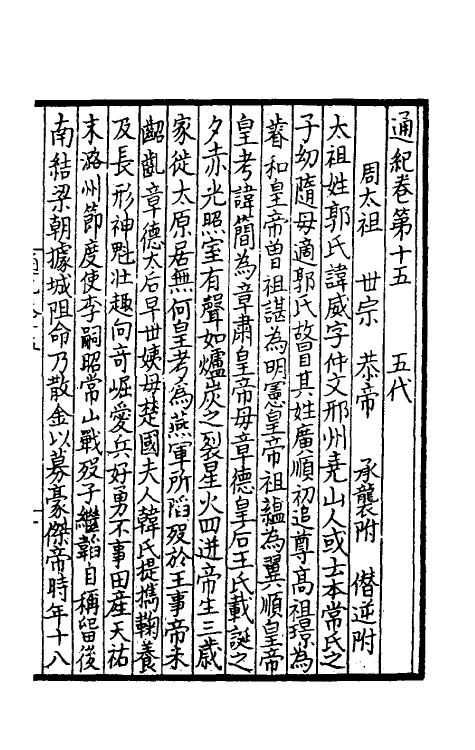 通紀卷第十五　　五代
周太祖　世宗　恭帝　承襲附　僣逆附
太祖姓郭氏諱威字仲文邢州堯山人或士本常氏之
子幼隨母適郭氏故冒其姓廣順初追尊高祖璟為
睿和皇帝曾祖諶為明憲皇帝祖蘊為翼順皇帝
皇考諱簡為章肅皇帝母章德皇后王氏載誕之
夕赤光照室有聲如爐炭之裂星火四迸帝生三歲
家徙太原居無何皇考為燕軍所陷歿於王事帝未
齠齔章德太后早世姨母楚國夫人韓氏提攜鞠養
及長形神魁壯趣向奇崛愛兵好勇不事田産天祐
末潞州節度使李嗣昭常山戰歿子繼韜自稱留後
南結梁朝據城阻命乃散金以募豪傑帝時年十八